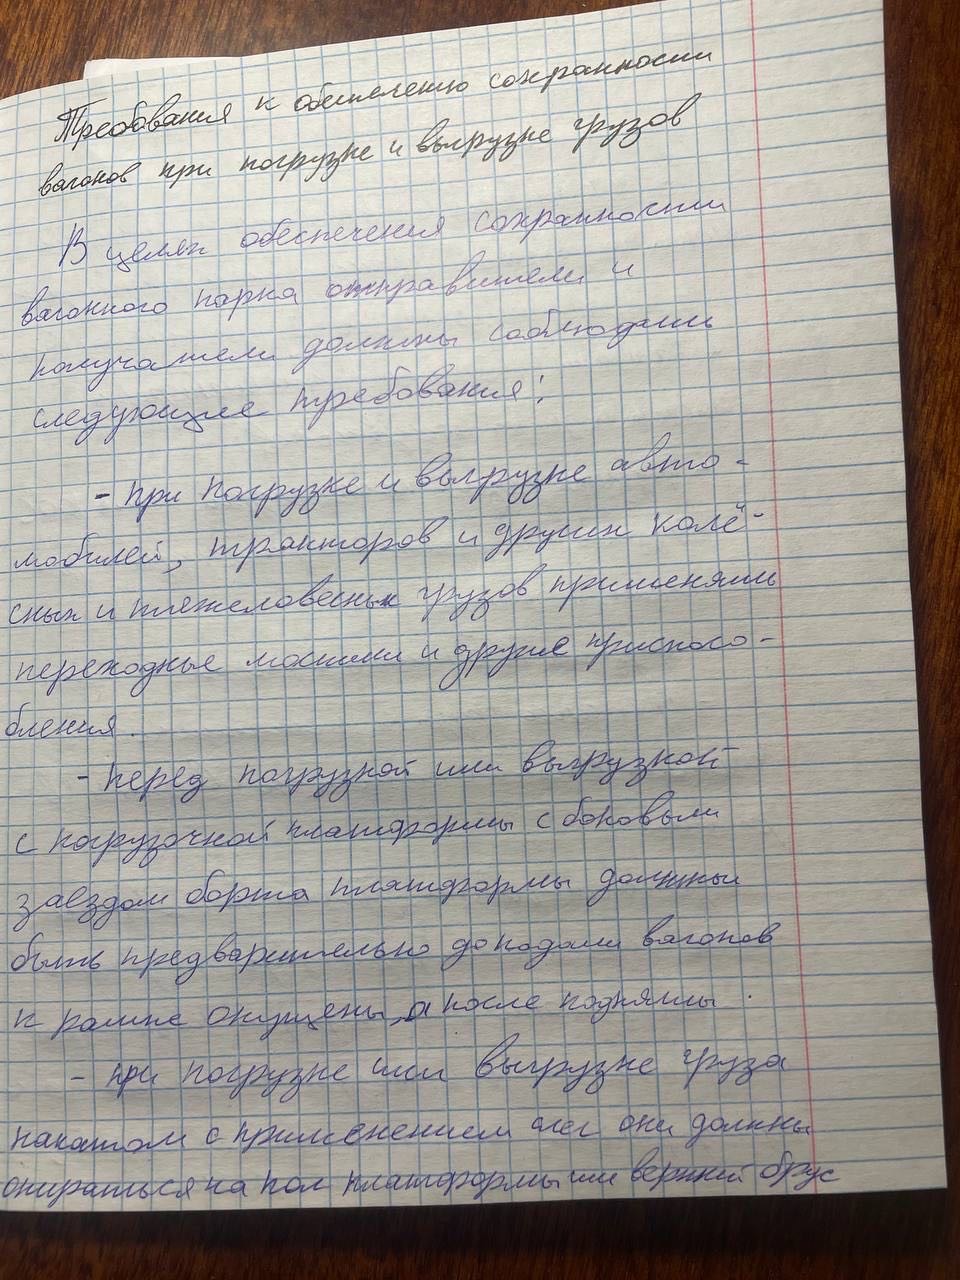 Требования к обеспечению сохранности
вагонов при погрузке и выгрузке грузов
В целях обеспечения сохранности
вагонного парка отправители и
получатели должны соблюдать
следующие требования:
- при погрузке и выгрузке авто-
мобилей, тракторов и других колё-
сных и тяжеловесных грузов применять
переходные мостики и другие приспосо-
бления.
- перед погрузкой или выгрузкой
с погрузочной платформы с боковым
заездом борта платформы должны
быть предварительно до подачи вагонов
к рампе опущены, а после подняты.
- при погрузке или выгрузке груза
накатом с применением слег они должны
опираться на пол платформы или верхний брус